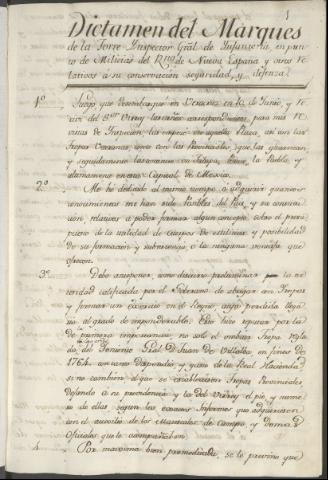 1
Dictamen del Marques
de la Torre Inspector Gral. de Infanteria, en pun
to de Milicias del Rno. de Nueva España y otros re
lativos a su conservacion seguridad, y defensa.
1º Luego, que desembarque en Veracruz en 1º de Junio, y re
civi del Sor. Virrey las correspondientes, para mis re
vistas de Inspeccion, las empecé en aquella Plaza, asi con las
tropas Veteranas, como con las Provinciales, que las guarnecen
y seguidamente las continué en Jalapa, la Puebla, y
ultimamente en esta Capital de Mexico.
2º Me hé dedicado al mismo tiempo a adquirir quantos
conocimientos me han sido posibles del Pais, y su constitu
cion, relativos a poder formar algun concepto sobre el presu
puesto de la utilidad de cuerpos de Milicias y posibilidad
de su formacion, y subsistencia, ó la ninguna ventaja que
ofrecen.
3º Debo anteponer, como discurso preliminar la ne
cesidad calificada por el Soberano de arreglar sus tropas
y formar un Exercito en el Reyno, cuya perdida llega
ria al grado de imponderable. Esto hizo reputar por de
la primera importancia no solo el embiar tropa regla
da del Teniente Gral. Dn. Juan de Villalba en fines de
1764. con tantos dispendios, y gasto de la Real Hacienda
si no tambien el que se estableciesen tropas Provinciales
dejando a su prudencia y la del Virrey el pie, y nume
ro de ellas, segun los exactos Informes que adquiriesen
con el auxilio de los Mariscales de Campo, y demas
Oficiales que le acompañaban.
4º Por maxima bien premeditada, se le previno que